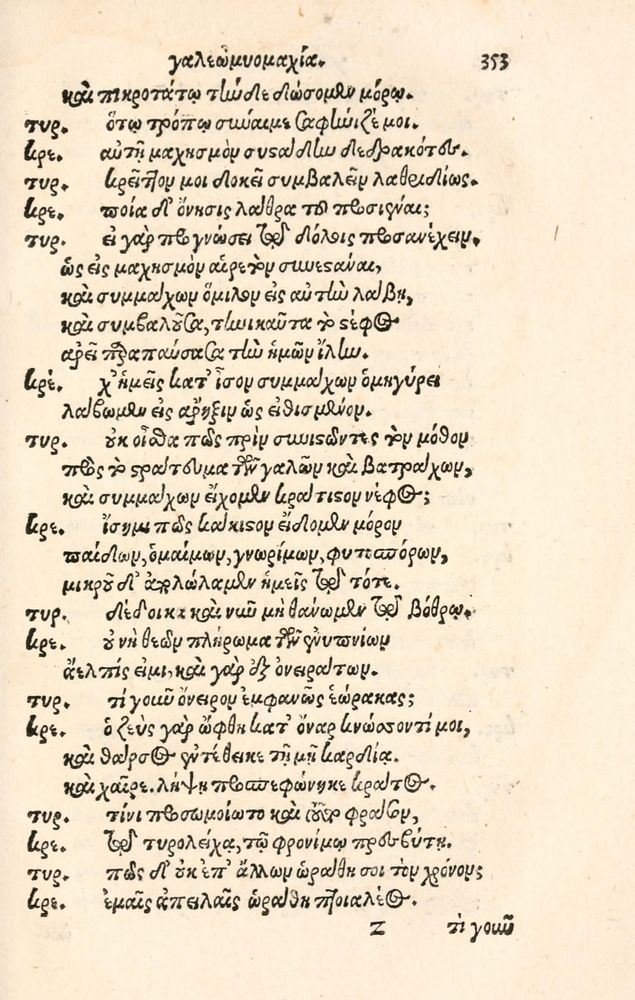 γαλεωμυομαχία. 353
καὶ πικροτάτῳ τήνδε δώσομεν μόρῳ.
τυρ. ὅτῳ τρόπῳ σύναιμε σαφήνιζέ μοι.
κρε. αὐτῇ μαχησμὸν συστάδην δεδρακότες.
τυρ. κρεῖττον μοι δοκεῖ συμβαλεῖν λαθριδίως.
κρε. ποία δ' ὄνησις λάθρα τοῦ προσιέναι;
τυρ. εἰ γὰρ προγνώσει τοῦ δόλοις προσανέχειν,
ὡς εἰς μαχησμὸν αἱρετὸν συνεστάναι,
καὶ συμμάχων ὅμιλον εἰς αὐτὴν λάβῃ,
καὶ συμβαλοῦσα, τηνικαῦτα τὸ στέφος
ἀρεῖ παραπαύσασα τὴν ἡμῶν ἴλην.
κρέ. χ' ἡμεῖς κατ' ἶσον συμμάχων ὁμηγύρει
λάβωμεν εἰς ἄρηξιν ὡς εἰθισμένον.
τυρ. οὐκ οἶσθα πῶς πρὶν συνιστῶντες τὸν μόθον
πρὸς τὸ στράτευμα τῶν γαλῶν καὶ βατράχων,
καὶ συμμάχων εἴχομεν κράτιστον νέφος;
κρε. ἴσημι πῶς κάκιστον εἴδομεν μόρον
παίδων, ὁμαίμων, γνωρίμων, φυτοσπόρων,
μικροῦ δ' ἀπολώλαμεν ἡμεῖς τοῦ τότε.
τυρ. δέδοικα καὶ νῦν μὴ θάνωμεν τοῦ βόθρῳ.
κρε. οὐ νὴ θεῶν πλήρωμα τῶν ἐνυπνίων
ἄελπίς εἰμι, καὶ γὰρ ἐξ ὀνειράτων.
τυρ. τί γοῦν ὄνειρον ἐμφανῶς ἑώρακας;
κρε. ὁ ζεὺς γὰρ ὤφθη κατ' ὄναρ κνώσσοντί μοι,
καὶ θάρσος ἐντέθεικε τῇ μῇ καρδίᾳ.
καὶ χαῖρε. λήψῃ προσπεφώνηκε κράτος.
τυρ. τίνι προσωμοίωτο καὶ τοῦτο φράσον,
κρε. τοῦ τυρολείχᾳ, τῷ φρονίμῳ πρεσβύτῃ.
τυρ. πῶς δ' οὐκ ἐπ' ἄλλων ὡράθη σοι τὸν χρόνον;
κρε. ἐμαῖς ἀπειλαῖς ὡράθη πτοιαλέος.
Z τὶ γοῦν